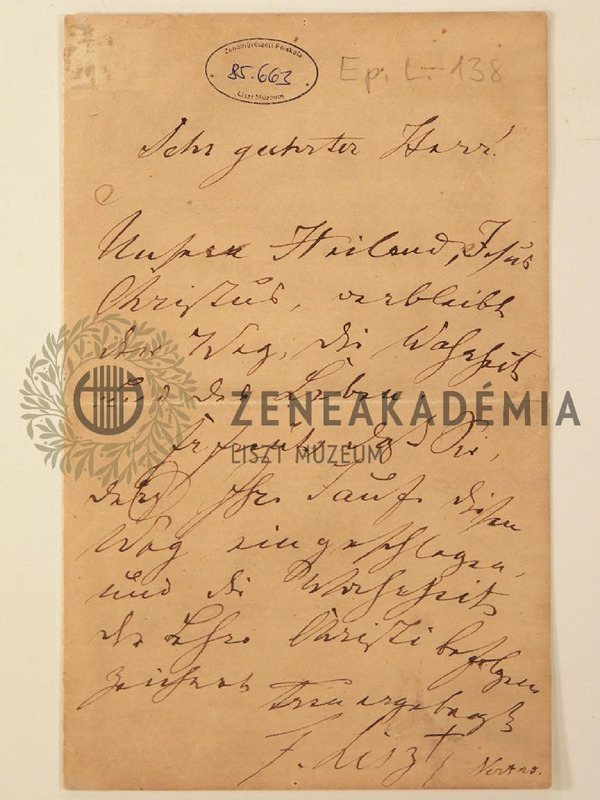 Zeneművészeti Főiskola
85.663
Liszt Múzeum
Ep. L. 138
Sehr geehrter Herr!
Unser Heiland, Jesus
Christus, verbleibt
der Weg, die Wahrheit
und das Leben.
ZENEAKADÉMIA
LISZT MÚZEUM
daß Sie,
durch Ihre Taufe diesen
Weg eingeschlagen,
und die Wahrheit
der Lehre Christi befolgen
zeichnet Treu ergebenst
F. Liszt